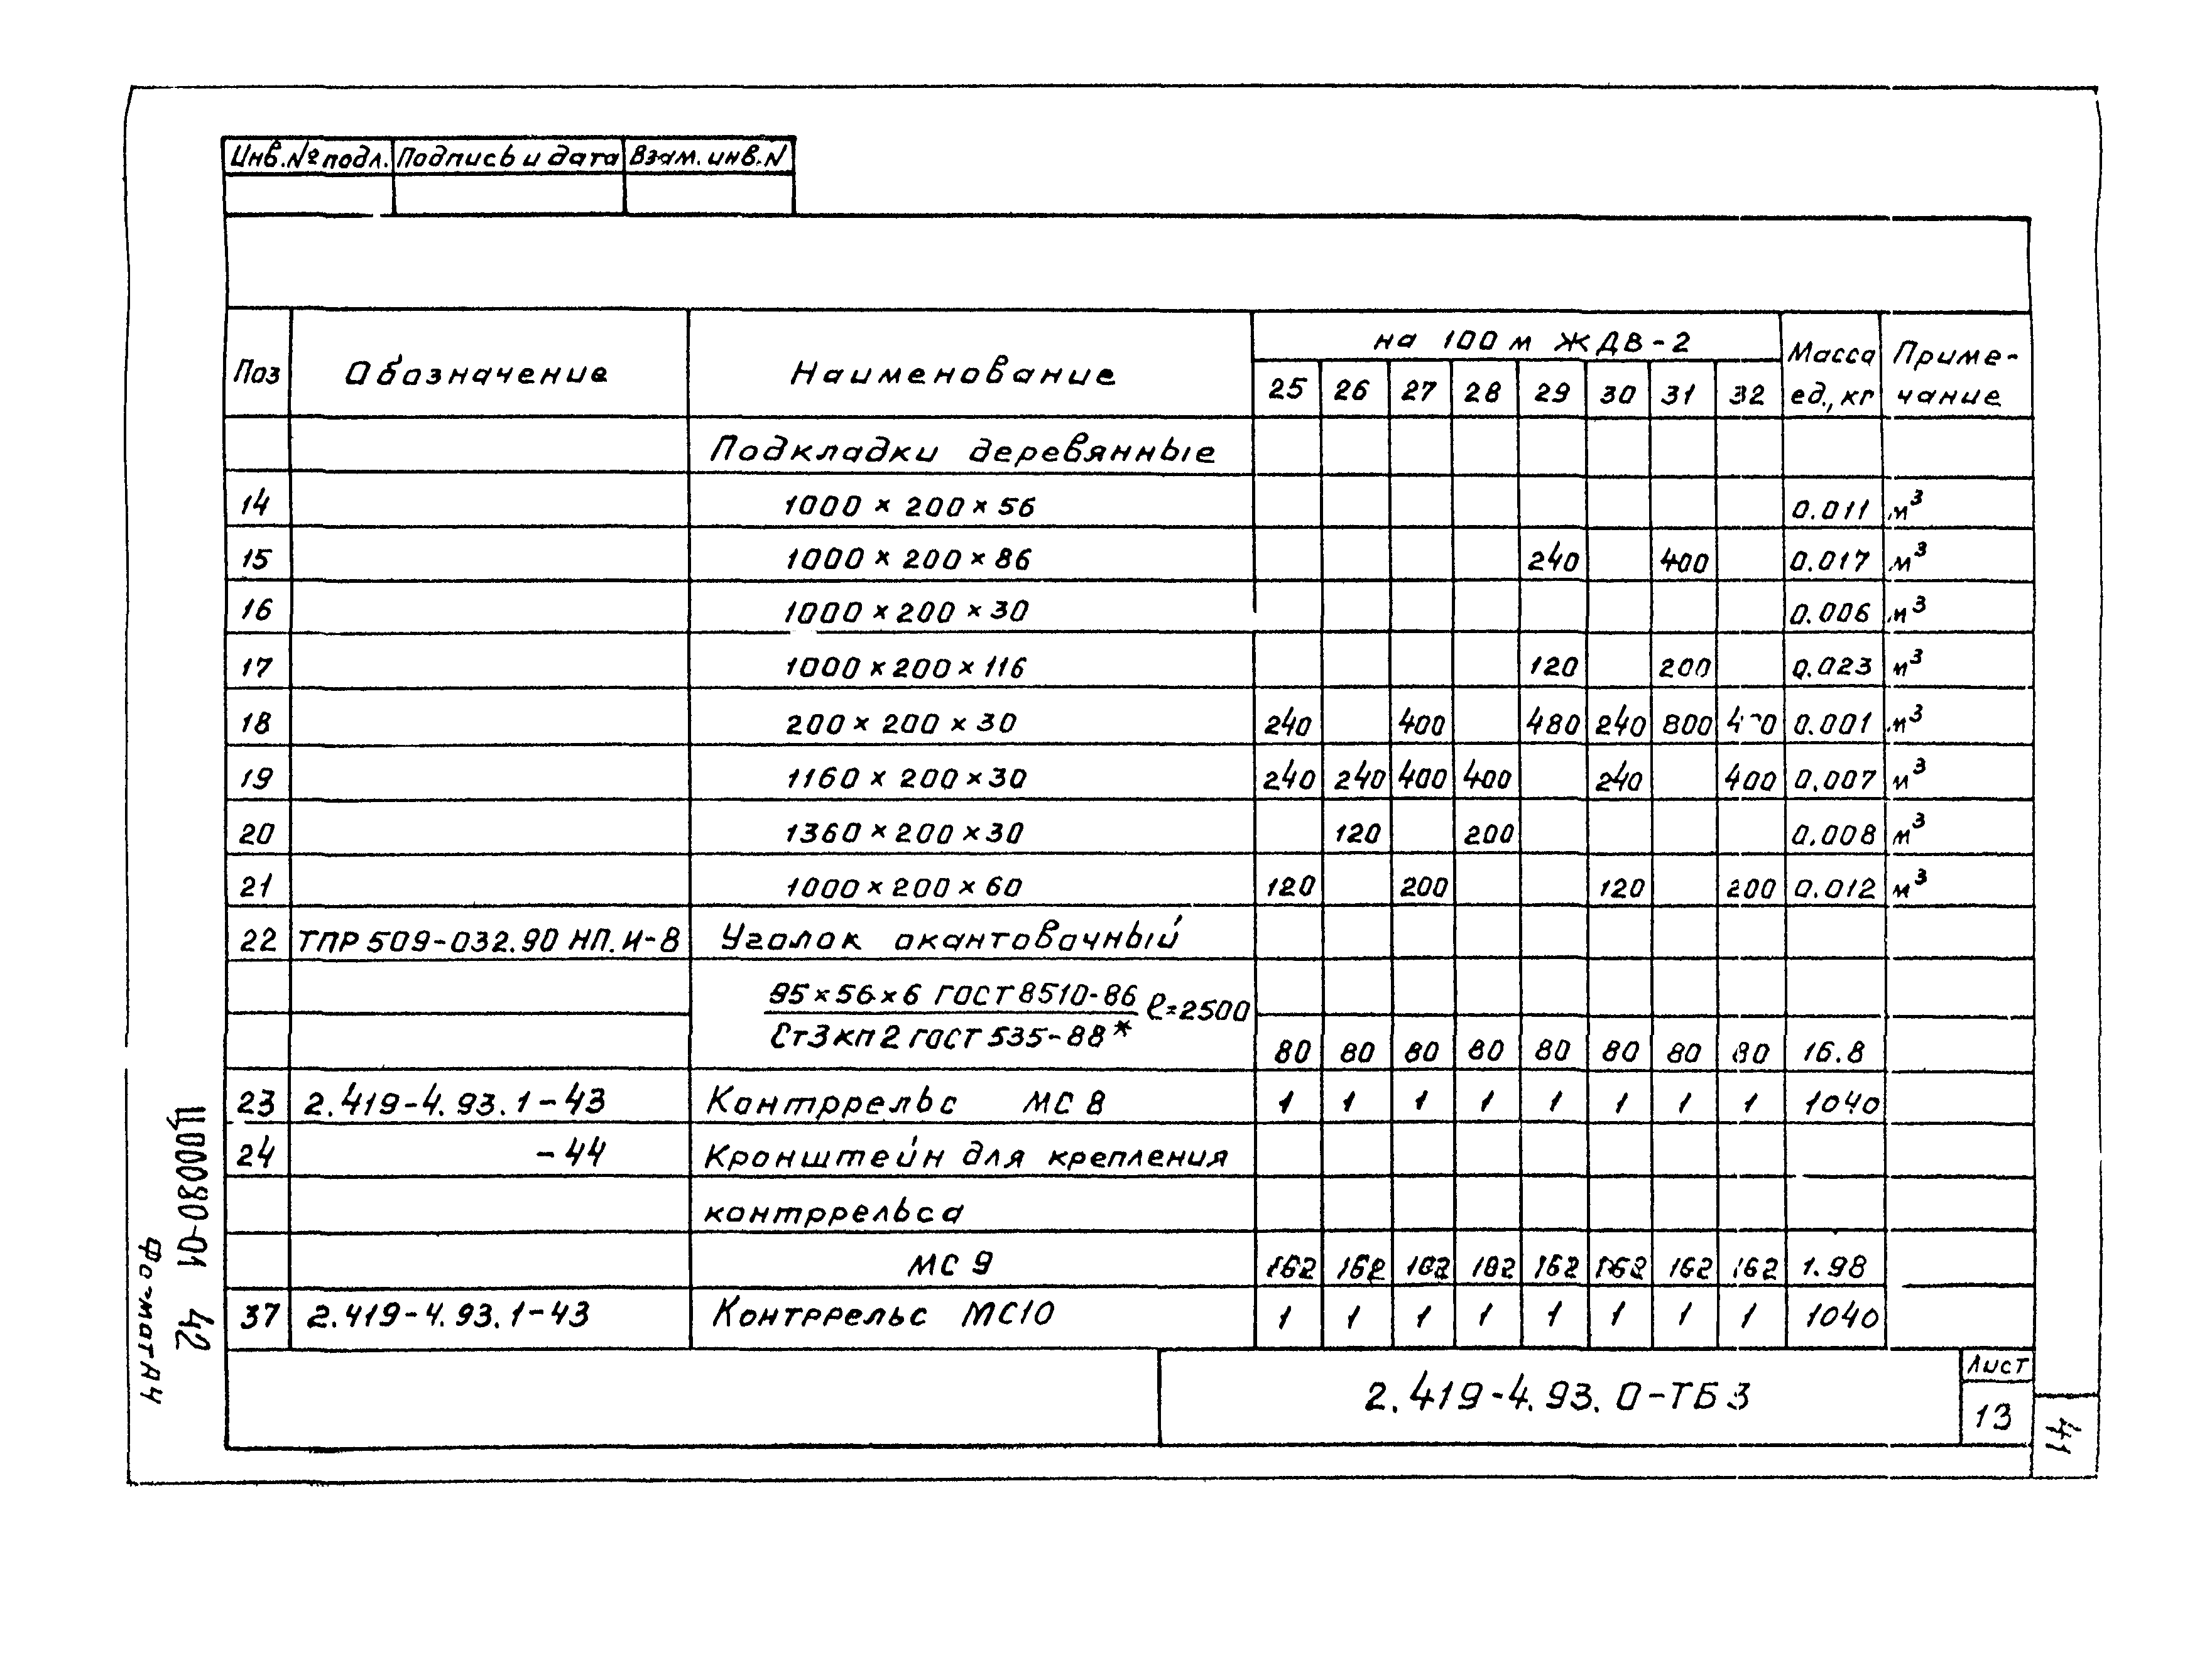 Инв.№подл. Подпись и дата Взам.инв.N
на 100м ЖДВ-2
Поз Обозначение Наименование 25 26 27 28 29 30 31 32 Масса ед.,кг Приме-чание
Подкладки деревянные
14 1000×200×56 0.011 м³
15 1000×200×86 240 400 0.017 м³
16 1000×200×30 0.006 м³
17 1000×200×116 120 200 0.023 м³
18 200×200×30 240 400 480 240 800 0.001 м³
19 1160×200×30 240 240 400 400 240 400 0.007 м³
20 1360×200×30 120 200 0.008 м³
21 1000×200×60 120 200 120 200 0.012 м³
22 ТПР 509-032.90 НП.И-8 Уголок окантовочный
95×56×6 ГОСТ 8510-86 ℓ=2500
Ст3кп2 ГОСТ 535-88*
80 80 80 80 80 80 80 80 16.8
23 2.419-4.93.1-43 Контррельс МС8 1 1 1 1 1 1 1 1 1040
24 -44 Кронштейн для крепления
контррельса
МС9 162 162 162 162 162 162 162 162 1.98
37 2.419-4.93.1-43 Контррельс МС10 1 1 1 1 1 1 1 1 1040
2.419-4.93.0-ТБ3
Лист
13
41
Ц00080-01 42
Формат А4